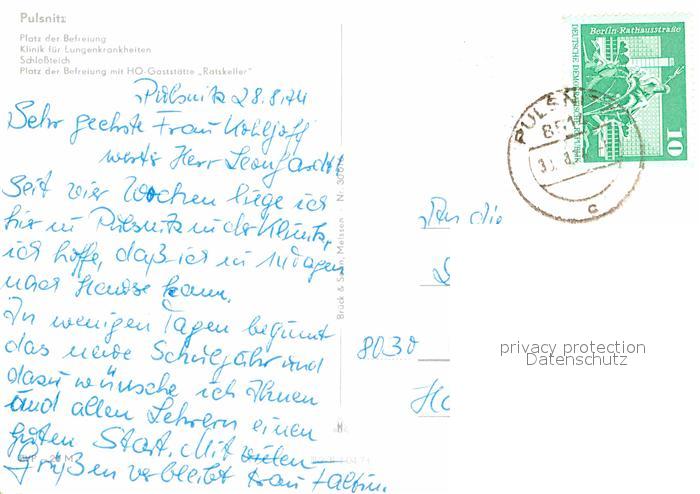 Pulsnitz
Platz der Befreiung
Klinik für Lungenkrankheiten
Schloßteich
Platz der Befreiung mit HO-Gaststätte „Ratskeller"
Pulsnitz 28.8.74
Sehr geehrte Frau Kohljoff
werter Herr Leonhardt!
Seit vier Wochen liege ich
hier in Pulsnitz in der Klinik,
ich hoffe, daß ich in 14 Tagen
nach Hause kann.
In wenigen Tagen beginnt
das neue Schuljahr und
dazu wünsche ich Ihnen
und allen Lehrern einen
guten Start. Mit vielen
Grüßen verbleibt Frau Faltin.
Brück & Sohn, Meissen
An die
8030
privacy protection
Datenschutz
Berlin · Rathausstraße
DEUTSCHE DEMOKRATISCHE REPUBLIK
10
PULSN
851
c